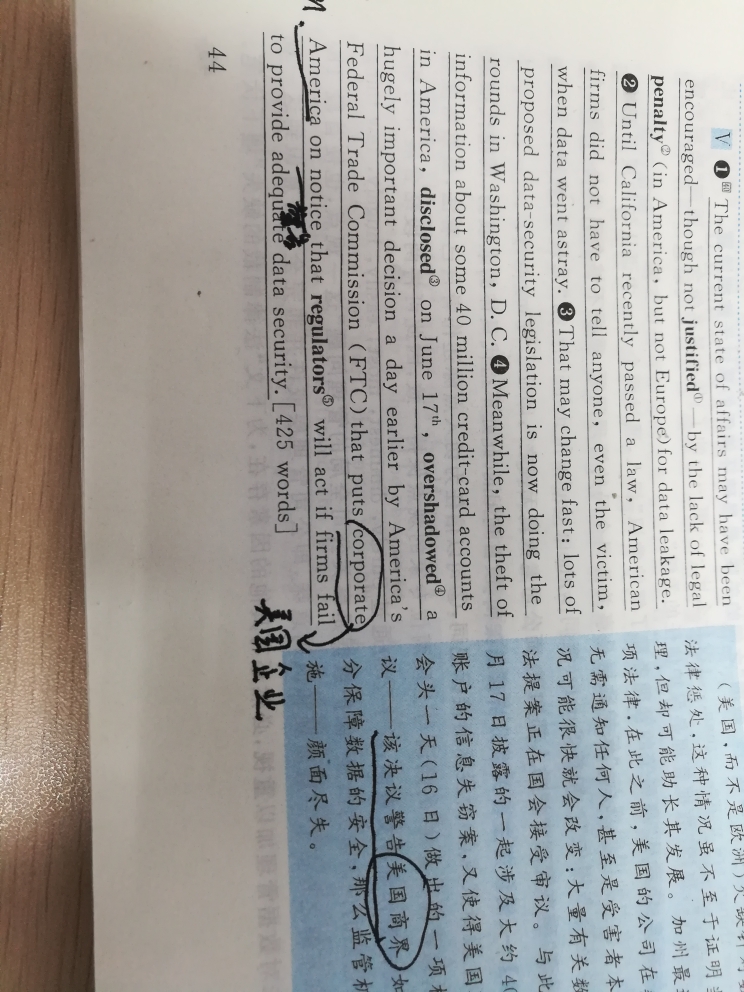 V ❶ The current state of affairs may have been
encouraged—though not justified①—by the lack of legal
penalty②(in America, but not Europe)for data leakage.
❷ Until California recently passed a law, American
firms did not have to tell anyone, even the victim,
when data went astray. ❸ That may change fast: lots of
proposed data-security legislation is now doing the
rounds in Washington, D.C. ❹ Meanwhile, the theft of
information about some 40 million credit-card accounts
in America, disclosed③ on June 17th, overshadowed④ a
hugely important decision a day earlier by America's
Federal Trade Commission (FTC) that puts corporate
America on notice that regulators⑤ will act if firms fail
to provide adequate data security. [425 words]
美国企业
44
(美国,而不是欧洲)
法律惩处,这种情况虽不至于证明
理,但却可能助长其发展。加州最
项法律,在此之前,美国的公司在
无需通知任何人,甚至是受害者本
况可能很快就会改变:大量有关数
法提案正在国会接受审议。与此
月17日披露的一起涉及大约4
账户的信息失窃案,又使得美国
会头一天(16日)做出的一项
议——该决议警告美国商界,如
分保障数据的安全,那么监管机
施——颜面尽失。